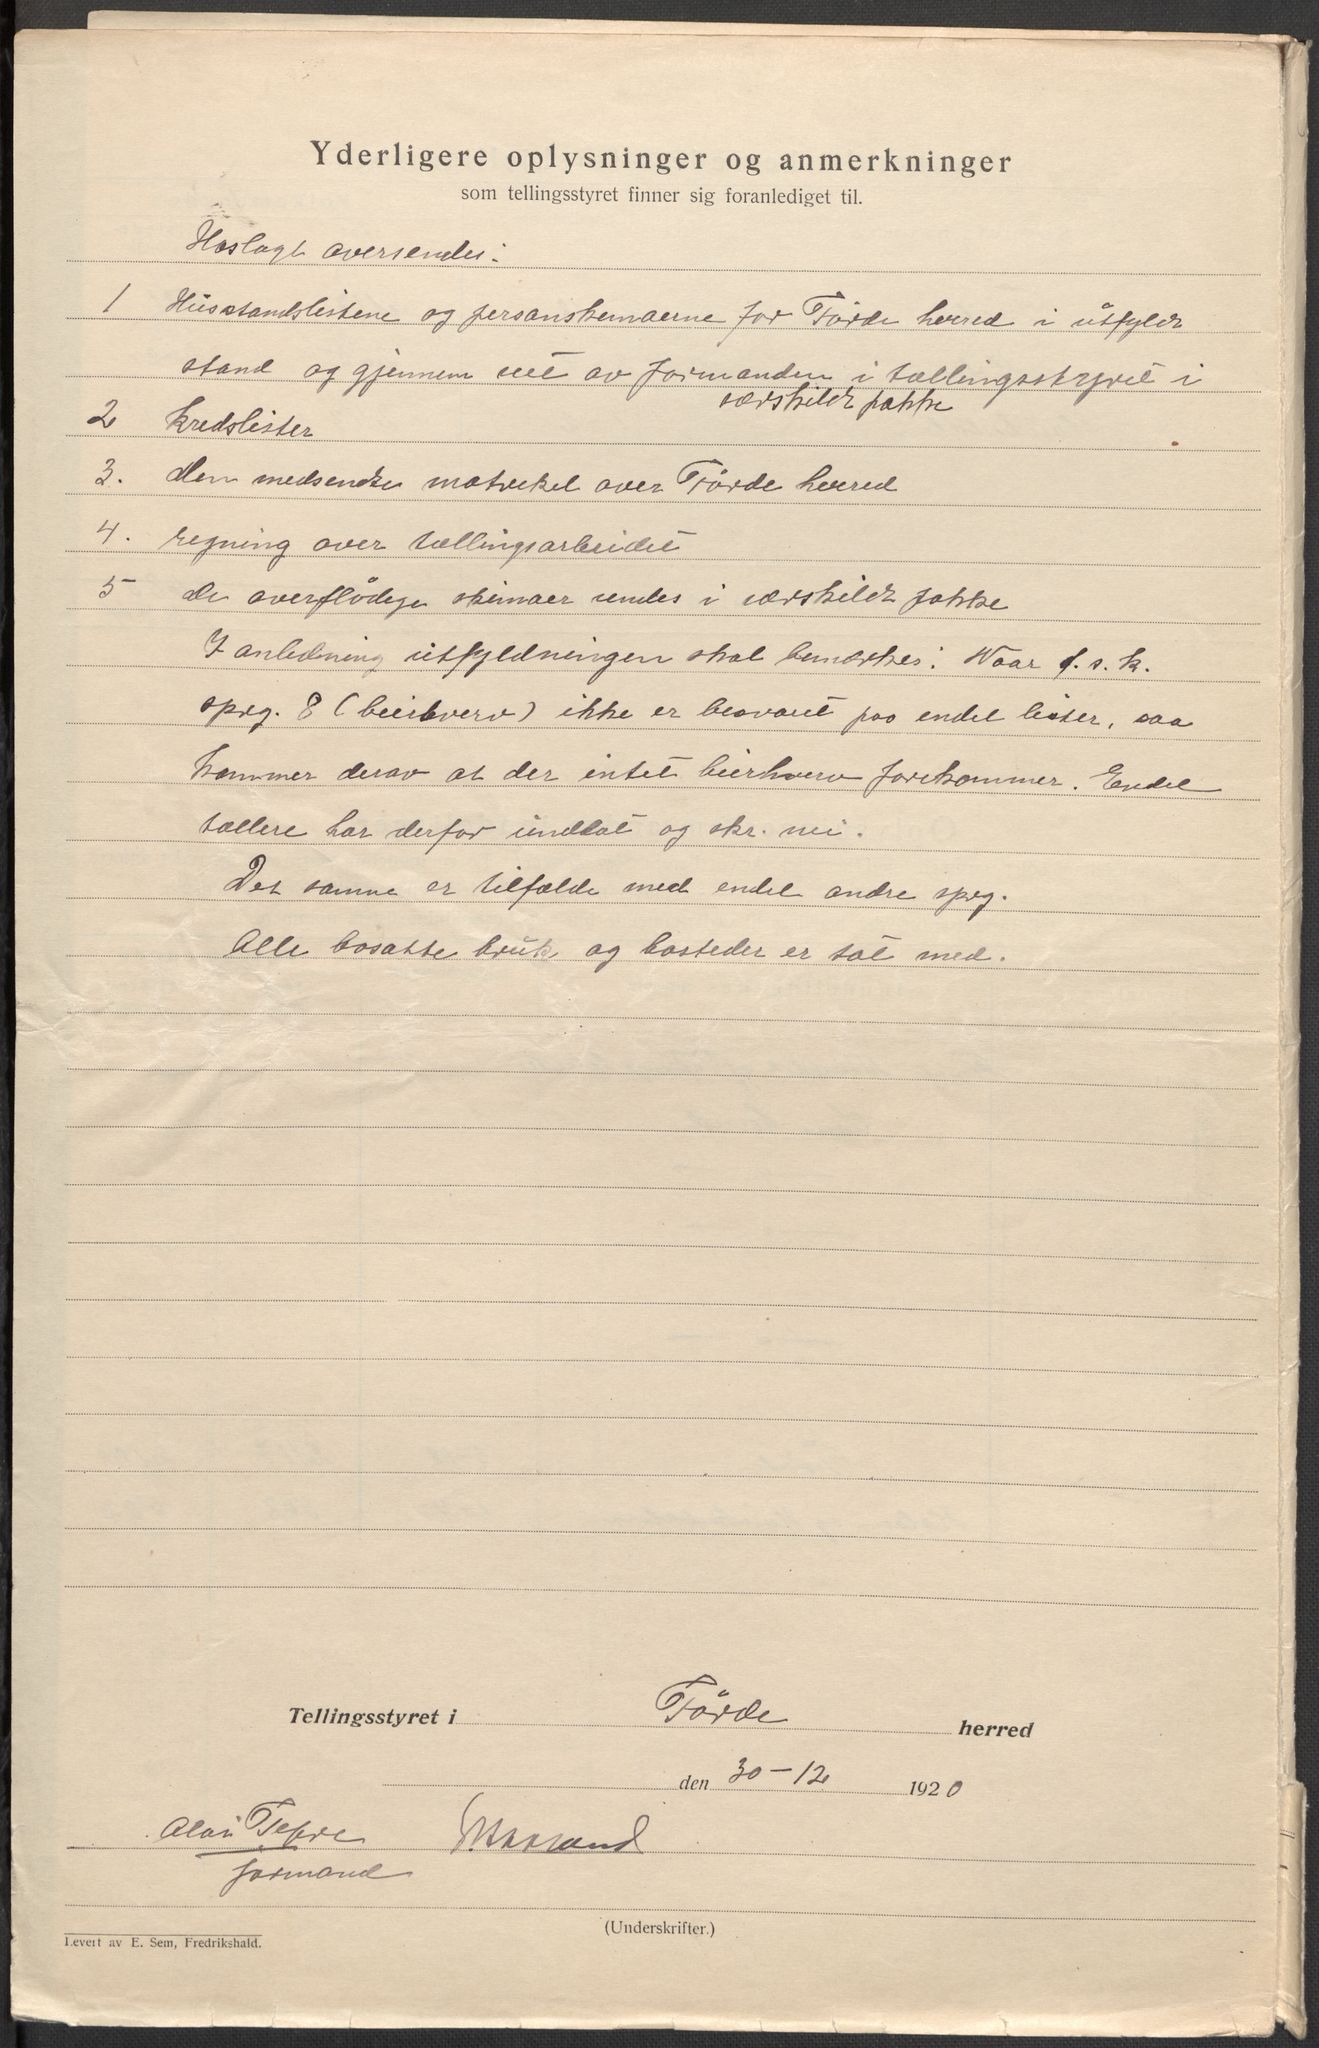 Yderligere oplysninger og anmerkninger
som tellingsstyret finner sig foranlediget til.
Hoslagt oversendes:
1 Husstandslistene og personskemaerne for Förde herred i utfyldt
stand og gjennem av formanden i tællingsstyret i
særskildt pakke
2 Kredslister
3. den medsendte matrikel over Förde herred
4. regning over tællingsarbeidet
5 de overflödige skemaer sendes i særskildt pakke
I anledning utfyldningen skal bemærkes: Naar f. s. k.
sprg. 8 (beierhverv) ikke er besvaret paa endel lister, saa
kommer derav at der intet beierhverv forekommer. Endel
tællere har derfor undlat og skr. nei.
Det samme er tilfælde med endel andre sprg.
Alle bosatte bruk og bosteder er tat med.
Tellingsstyret i Förde herred
den 30-12 1920
formand
(Underskrifter.)
Levert av E. Sem, Fredrikshald.